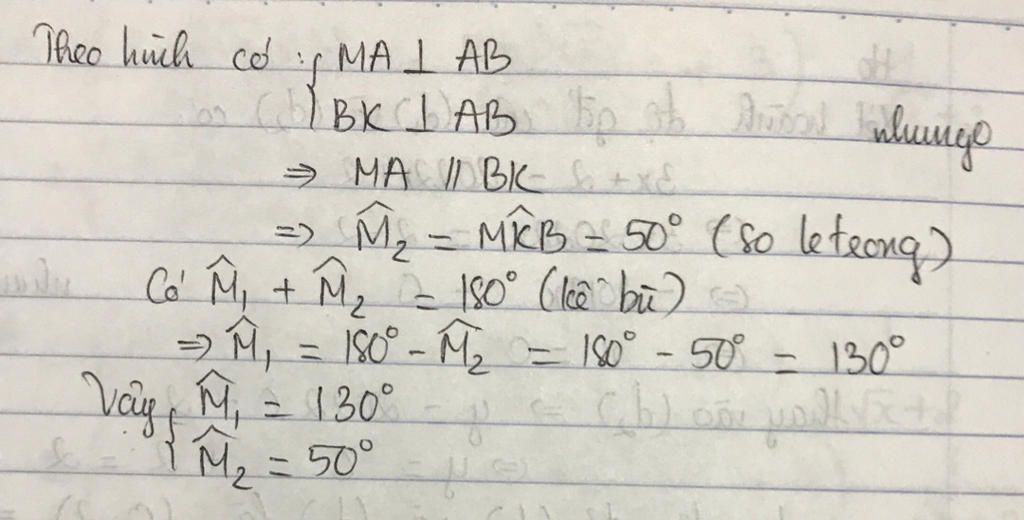 Theo hình có : { MA ⊥ AB
BK ⊥ AB
nhungo
⇒ MA // BK
⇒ M̂₂ = MK̂B = 50° (so le trong)
Có M̂₁ + M̂₂ = 180° (kề bù)
⇒ M̂₁ = 180° - M̂₂ = 180° - 50° = 130°
Vậy { M̂₁ = 130°
M̂₂ = 50°